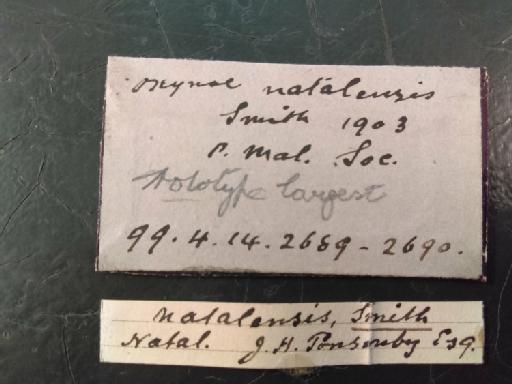 Oxynoe natalensis
Smith 1903
P. Mal. Soc.
Holotype largest
99.4.14.2689-2690.
natalensis, Smith
Natal. J. H. Ponsonby Esq.